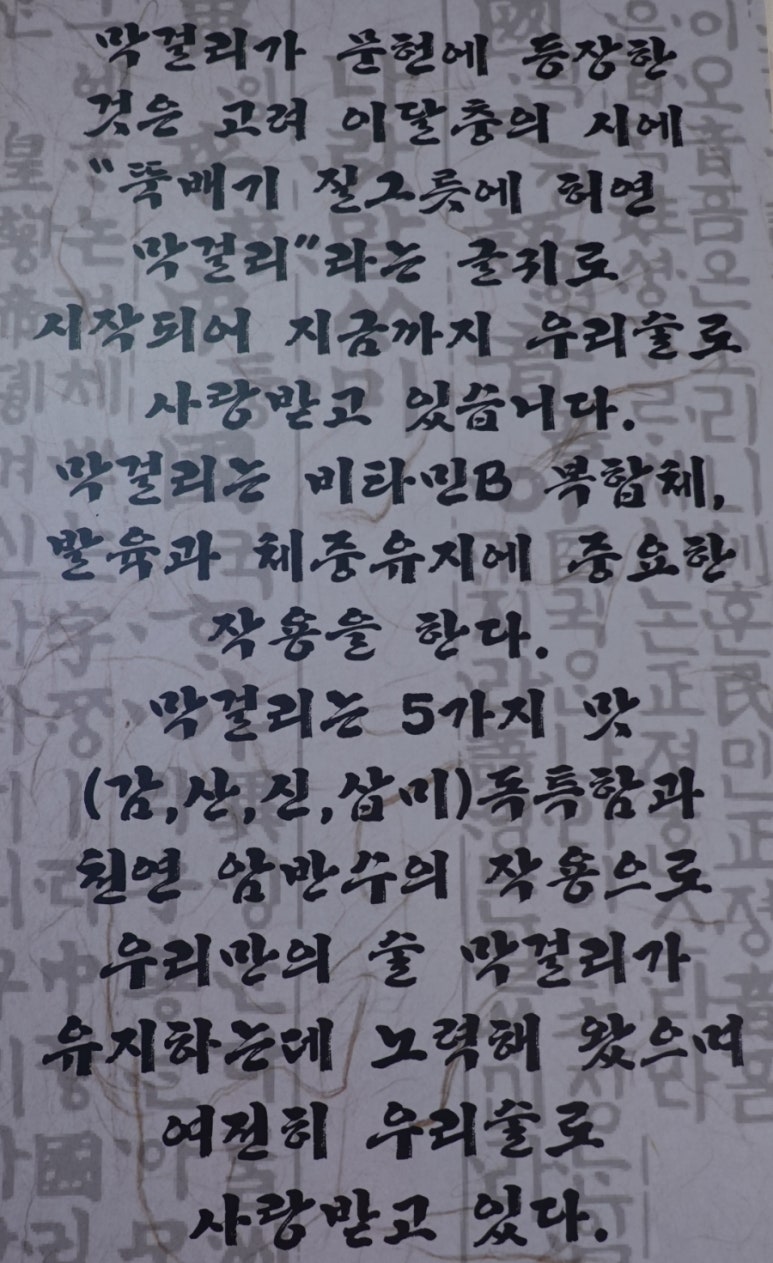 막걸리가 문헌에 등장한
것은 고려 이달충의 시에
"뚝배기 질그릇에 허연
막걸리"라는 글귀로
시작되어 지금까지 우리술로
사랑받고 있습니다.
막걸리는 비타민B 복합체,
발육과 체중유지에 중요한
작용을 한다.
막걸리는 5가지 맛
(감,산,신,삽미)독특함과
천연 암반수의 작용으로
우리만의 술 막걸리가
유지하는데 노력해 왔으며
여전히 우리술로
사랑받고 있다.